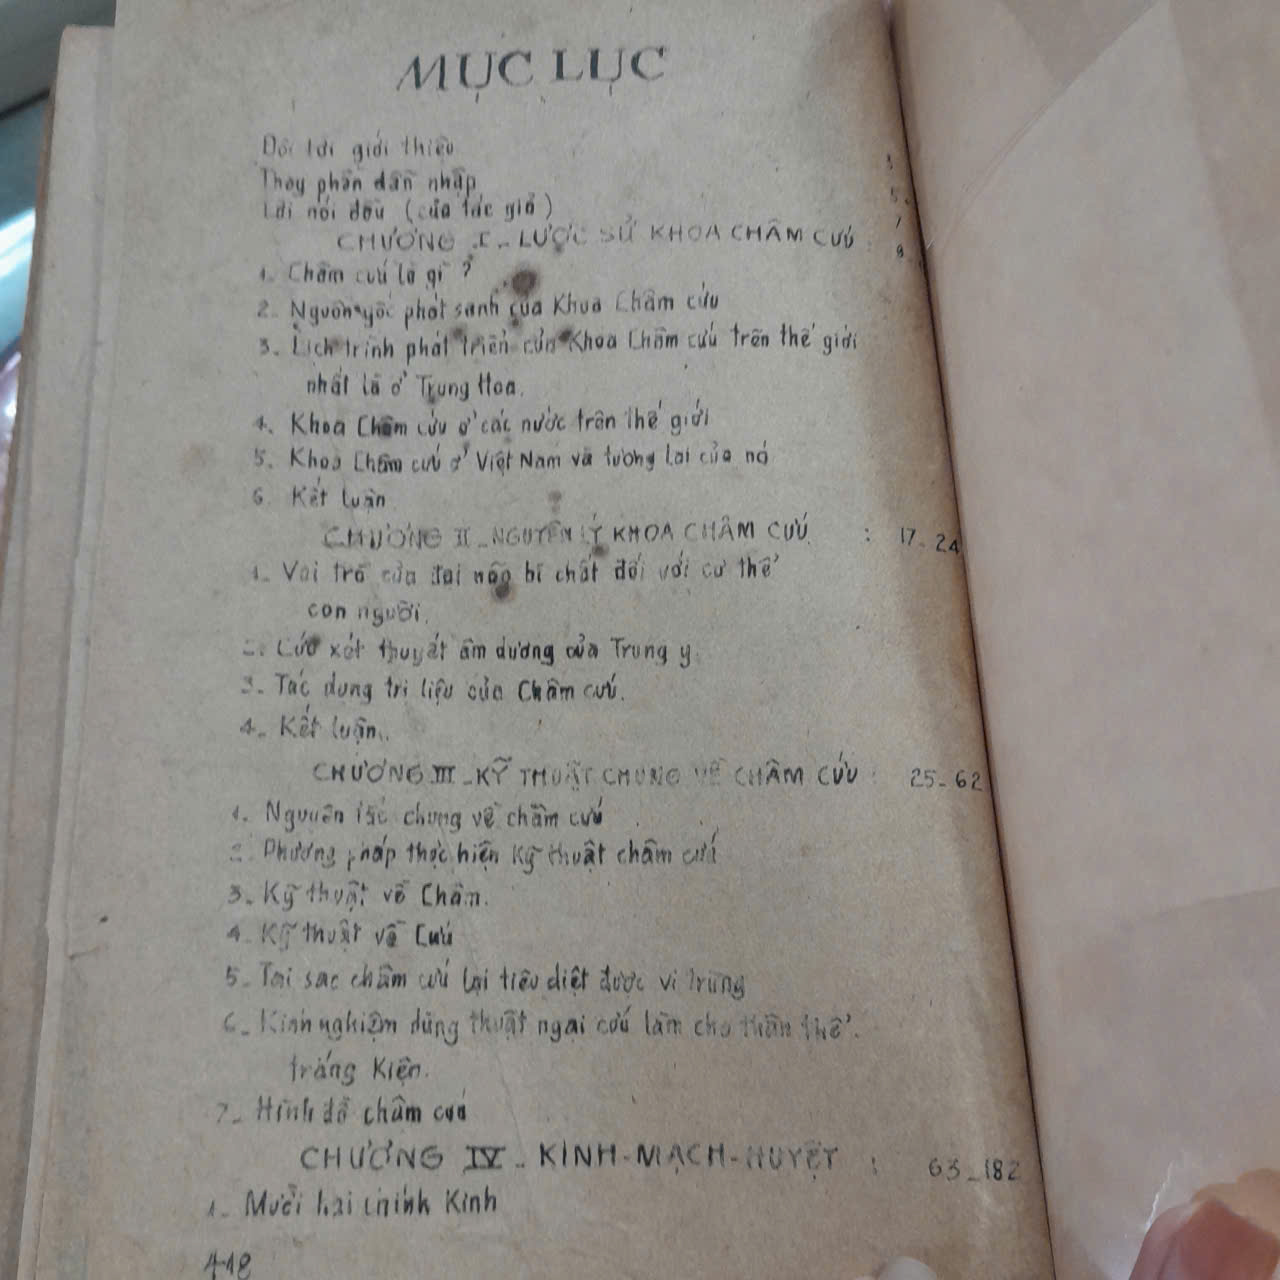 MỤC LỤC
Đôi lời giới thiệu 3
Thay phần dẫn nhập 5
Lời nói đầu (của tác giả) 7
CHƯƠNG I - LƯỢC SỬ KHOA CHÂM CỨU : 9
1. Châm cứu là gì ?
2. Nguồn gốc phát sanh của Khoa Châm cứu
3. Lịch trình phát triển của Khoa Châm cứu trên thế giới
nhất là ở Trung Hoa.
4. Khoa Châm cứu ở các nước trên thế giới
5. Khoa Châm cứu ở Việt Nam và tương lai của nó
6. Kết luận
CHƯƠNG II - NGUYÊN LÝ KHOA CHÂM CỨU : 17-24
1- Vai trò của đại não bì chất đối với cơ thể
con người.
2. Cứu xét thuyết âm dương của Trung y.
3- Tác dụng trị liệu của Châm cứu.
4- Kết luận.
CHƯƠNG III - KỸ THUẬT CHUNG VỀ CHÂM CỨU : 25-62
1. Nguyên tắc chung về châm cứu
2. Phương pháp thực hiện Kỹ thuật châm cứu
3- Kỹ thuật về Châm.
4- Kỹ thuật về Cứu
5- Tại sao châm cứu lại tiêu diệt được vi trùng
6- Kinh nghiệm dùng thuật ngải cứu làm cho thân thể
tráng Kiện.
7- Hình đồ châm cứu
CHƯƠNG IV - KINH-MẠCH-HUYỆT : 63-182
1- Mười hai chính Kinh
418